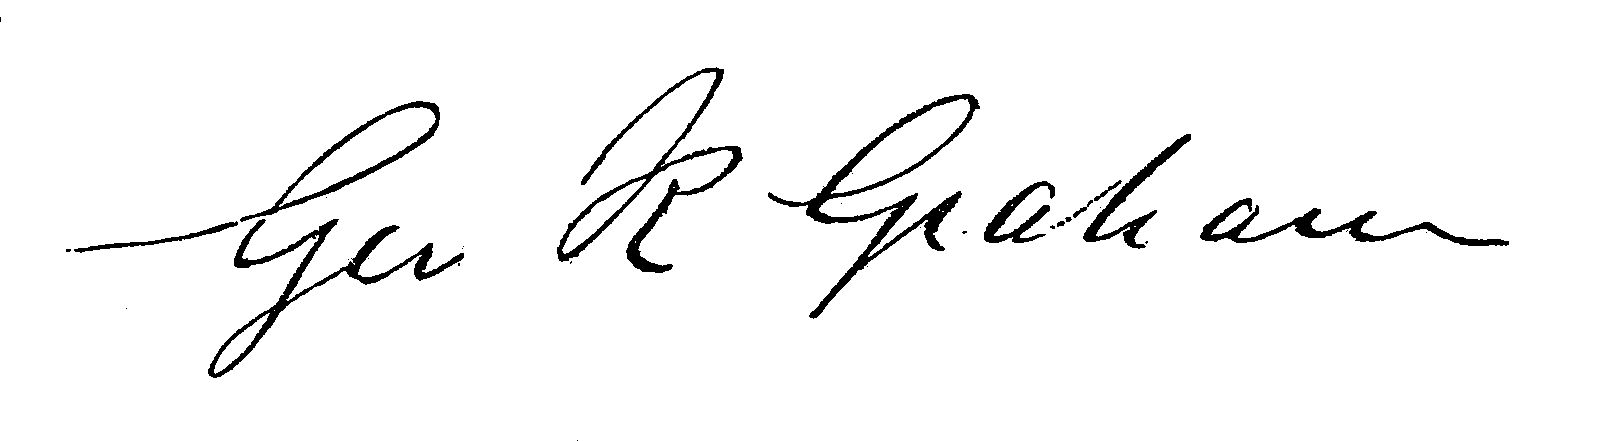 Geo R Graham